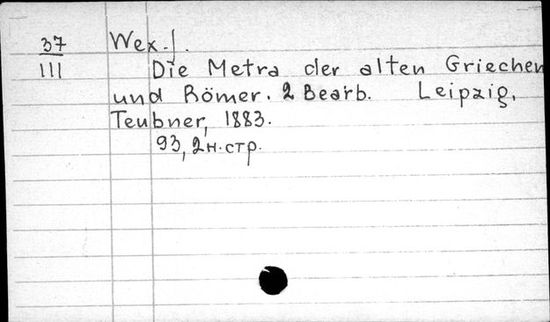 37 Wex. J.
III Die Metra der alten Griechen
und Römer. 2 Bearb. Leipzig,
Teubner, 1883.
93, 2 н. стр.